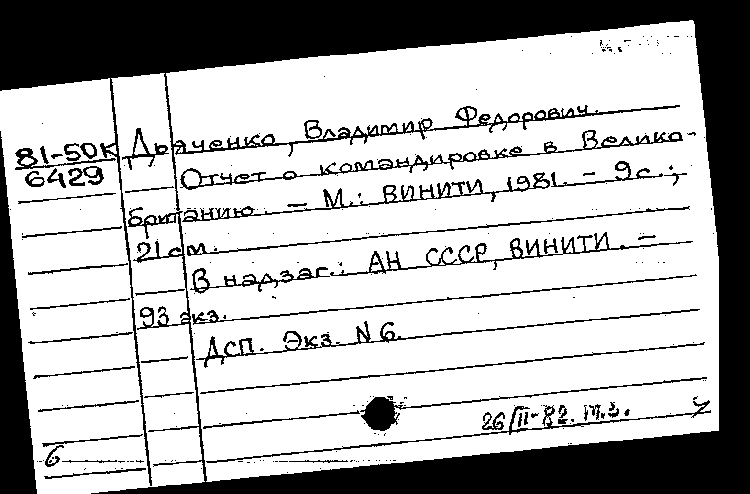 81-50К
6429
Дьяченко, Владимир Федорович.
Отчет о командировке в Велико-
британию. – М.: ВИНИТИ, 1981. – 9 с.;
21 см.
В надзаг.: АН СССР, ВИНИТИ. –
93 экз.
Дсп. Экз. N 6.
26/II-82. м.з.
6